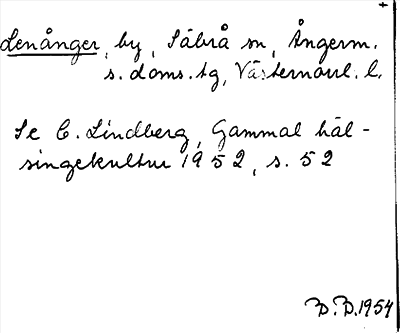 Lenånger, by, Säbrå sn, Ångerm.
s. doms. tg, Västernorrl. l.
Se C. Lindberg, Gammal häl-
singekultur 1952, s. 52
B.B. 1954